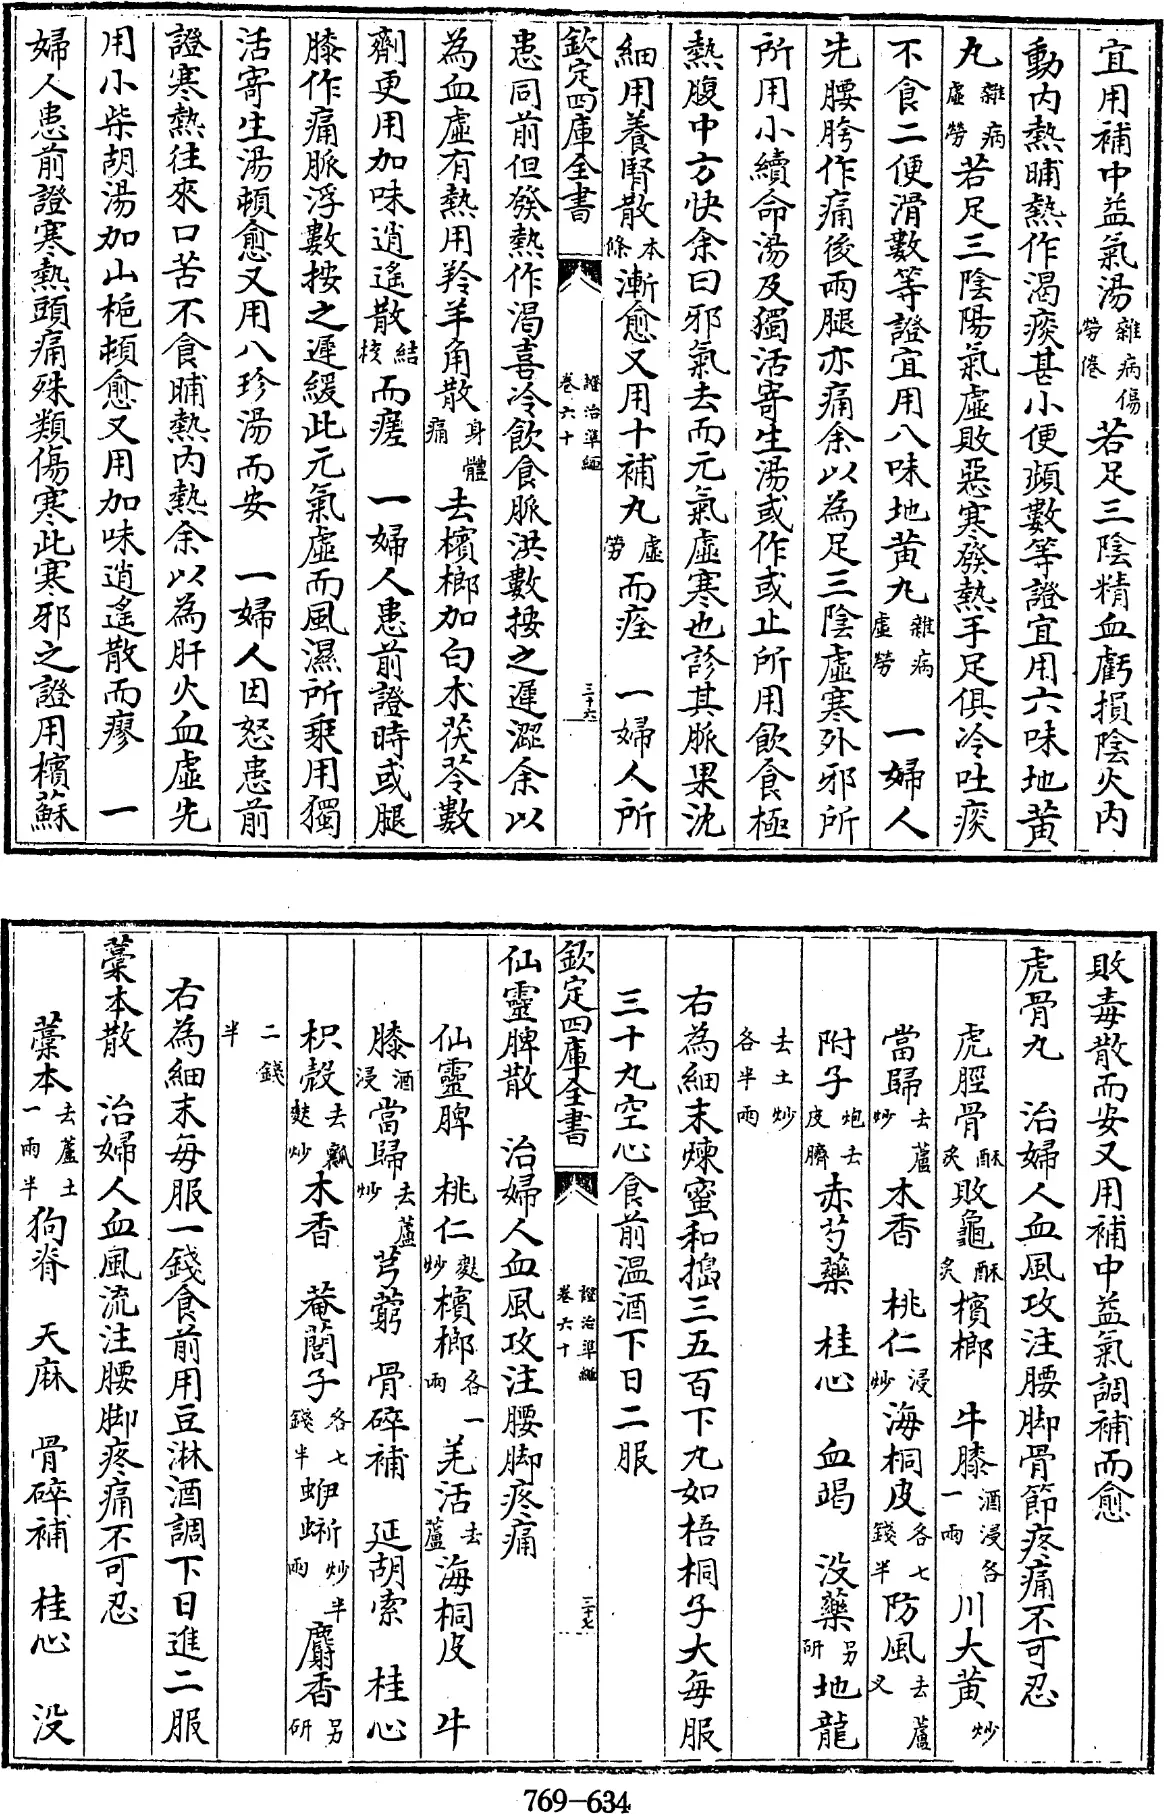 宜用補中益氣湯雜病傷勞倦若足三陰精血虧損陰火内
動内熱晡熱作渴痰甚小便頻數等證宜用六味地黄
丸雜病虛勞若足三陰陽氣虛敗惡寒發熱手足俱冷吐痰
不食二便滑數等證宜用八味地黄丸雜病虛勞 一婦人
先腰胯作痛後兩腿亦痛余以為足三陰虛寒外邪所
所用小續命湯及獨活寄生湯或作或止所用飲食極
熱腹中方快余曰邪氣去而元氣虛寒也診其脈果沈
細用養腎散本條漸愈又用十補丸虛勞而痊 一婦人所
欽定四庫全書 證治準繩卷六十 三十六
患同前但發熱作渴喜冷飲食脈洪數按之遲澀余以
為血虛有熱用羚羊角散身體痛去檳榔加白术茯苓數
劑更用加味逍遙散結核而瘥 一婦人患前證時或腿
膝作痛脈浮數按之遲緩此元氣虛而風濕所乗用獨
活寄生湯頓愈又用八珍湯而安 一婦人因怒患前
證寒熱往來口苦不食晡熱内熱余以為肝火血虛先
用小柴胡湯加山梔頓愈又用加味逍遙散而瘳 一
婦人患前證寒熱頭痛殊類傷寒此寒邪之證用檳蘇
敗毒散而安又用補中益氣調補而愈
虎骨丸 治婦人血風攻注腰脚骨節疼痛不可忍
虎脛骨酥炙敗龜酥炙檳榔 牛膝酒浸各一兩川大黄炒
當歸去蘆炒木香 桃仁浸炒海桐皮各七錢半防風去蘆叉
附子炮去皮臍赤芍藥 桂心 血竭 没藥另研地龍
去土炒各半兩
右為細末煉蜜和搗三五百下丸如梧桐子大每服
三十丸空心食前温酒下日二服
欽定四庫全書 證治準繩卷六十 三十七
仙靈脾散 治婦人血風攻注腰脚疼痛
仙靈脾 桃仁麩炒檳榔各一兩羌活去蘆海桐皮 牛
膝酒浸當歸去蘆炒芎藭 骨碎補 延胡索 桂心
枳殼去瓤麩炒木香 菴䕡子各七錢半蛜蚚炒半兩麝香另研
二錢半
右為細末每服一錢食前用豆淋酒調下日進二服
藁本散 治婦人血風流注腰脚疼痛不可忍
藁本去蘆土一兩半狗脊 天麻 骨碎補 桂心 没
769-634